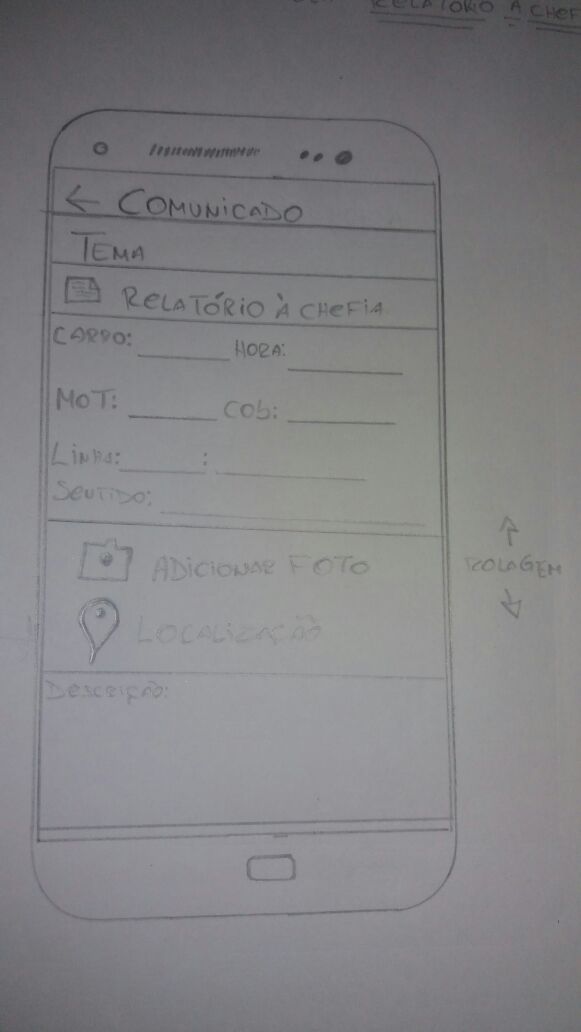 RELATÓRIO À CHEF
← COMUNICADO
TEMA
RELATÓRIO À CHEFIA
CARRO: HORA:
MOT: COB:
LINHA: :
SENTIDO:
ADICIONAR FOTO
ROLAGEM
LOCALIZAÇÃO
DESCRIÇÃO: